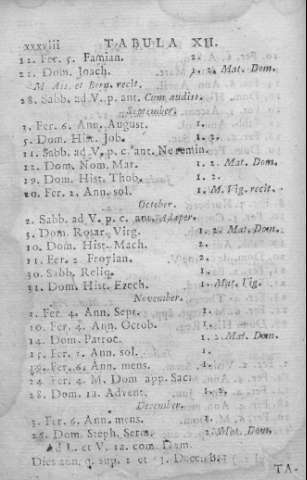 xxxviii TABULA XII.
12. Fer. 5. Famian. 2.
21. Dom. Joach. 1. 2. Mat. Dom.
M. Ass. et Bern. recit.
28. Sabb. ad V. p. ant. Cum audiss.
September.
3. Fer. 6. Ann. August. 1.
5. Dom. Hist. Job. 1. 2.
11. Sabb. ad V. p. c. ant. Ne remin.
12. Dom. Nom. Mar. 1. 2. Mat. Dom.
19. Dom. Hist. Thob. 1. 2.
20. Fer. 2. Ann. sol. 1. M. Vig. recit.
October.
2. Sabb. ad V. p. c. ant. Adaper.
3. Dom. Rosar. Virg. 1. 2. Mat. Dom.
10. Dom. Hist. Mach. 2.
11. Fer. 2 Froylan. 2.
30. Sabb. Reliq. 1.
31. Dom. Hist. Ezech. 1. Mat. Vig.
November.
Fer. 4. Ann. Sept. 1.
10. Fer. 4. Ann. Octob. 1.
14. Dom. Patroc. 1. 2. Mat. Dom.
15. Fer. 2. Ann. sol. 1.
Fer. 6. Ann. mens. 1.
24. Fer. 4. M. Dom app. Sac.
28. Dom. 1a. Advent. 1. 2.
December.
3. Fer. 6. Ann. mens. 1.
Dom. Steph. Serm. 2. Mat. Dom.
Ad L. et V. 1a. com. Dom.
Diet. ann. q. sup. 2 et 3. Decemb.
TA-